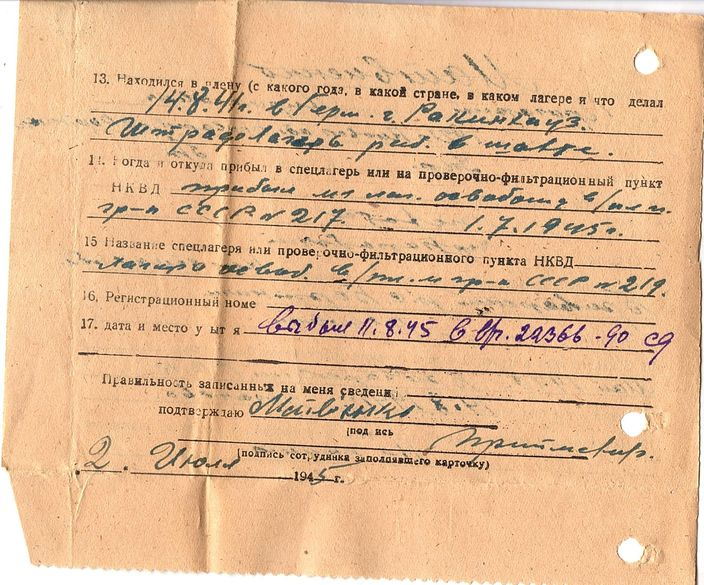 13. Находился в плену (с какого года, в какой стране, в каком лагере и что делал
14.8.41г. в Герм. г.
Штрафлагерь раб. в шахте.
14. Когда и откуда прибыл в спецлагерь или на проверочно-фильтрационный пункт
НКВД прибыл из лаг. освобожд в/пл и
гр-н СССР № 217. 1.7.1945г.
15 Название спецлагеря или проверочно-фильтрационного пункта НКВД
лагерь освоб. в/пл. и гр-н СССР № 219.
16. Регистрационный номе
17. дата и место у ыт я выбыл 11.8.45 в 22366-90 сд
Правильность записанных на меня сведени
подтверждаю
(под ись
(подпись сотрудника заполнявшего карточку)
2. Июля 1945 г.